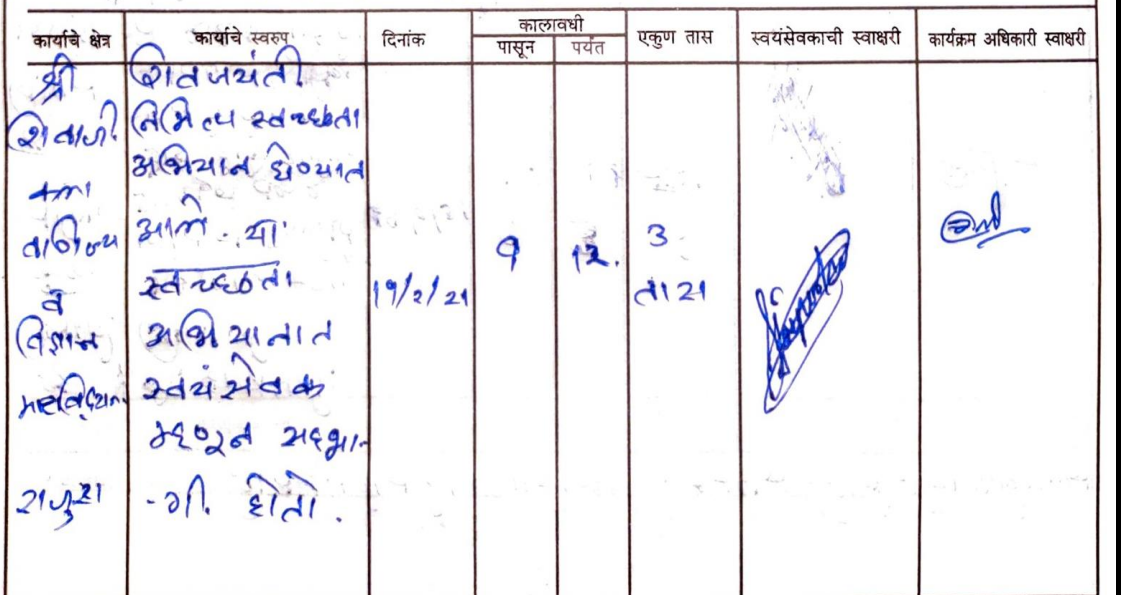 कार्याचे क्षेत्र कार्याचे स्वरुप दिनांक कालावधी एकुण तास स्वयंसेवकाची स्वाक्षरी कार्यक्रम अधिकारी स्वाक्षरी
पासून पर्यंत
श्री
शिवाजी
कला
वाणिज्य
व
विज्ञान
महाविद्या.
राजुरा
शिवजयंती
निमित्य स्वच्छता
अभियान घेण्यात
आले. या
स्वच्छता
अभियानात
स्वयंसेवक
म्हणून सहभा-
-गी होतो.
19/2/21
9
12.
3
तास